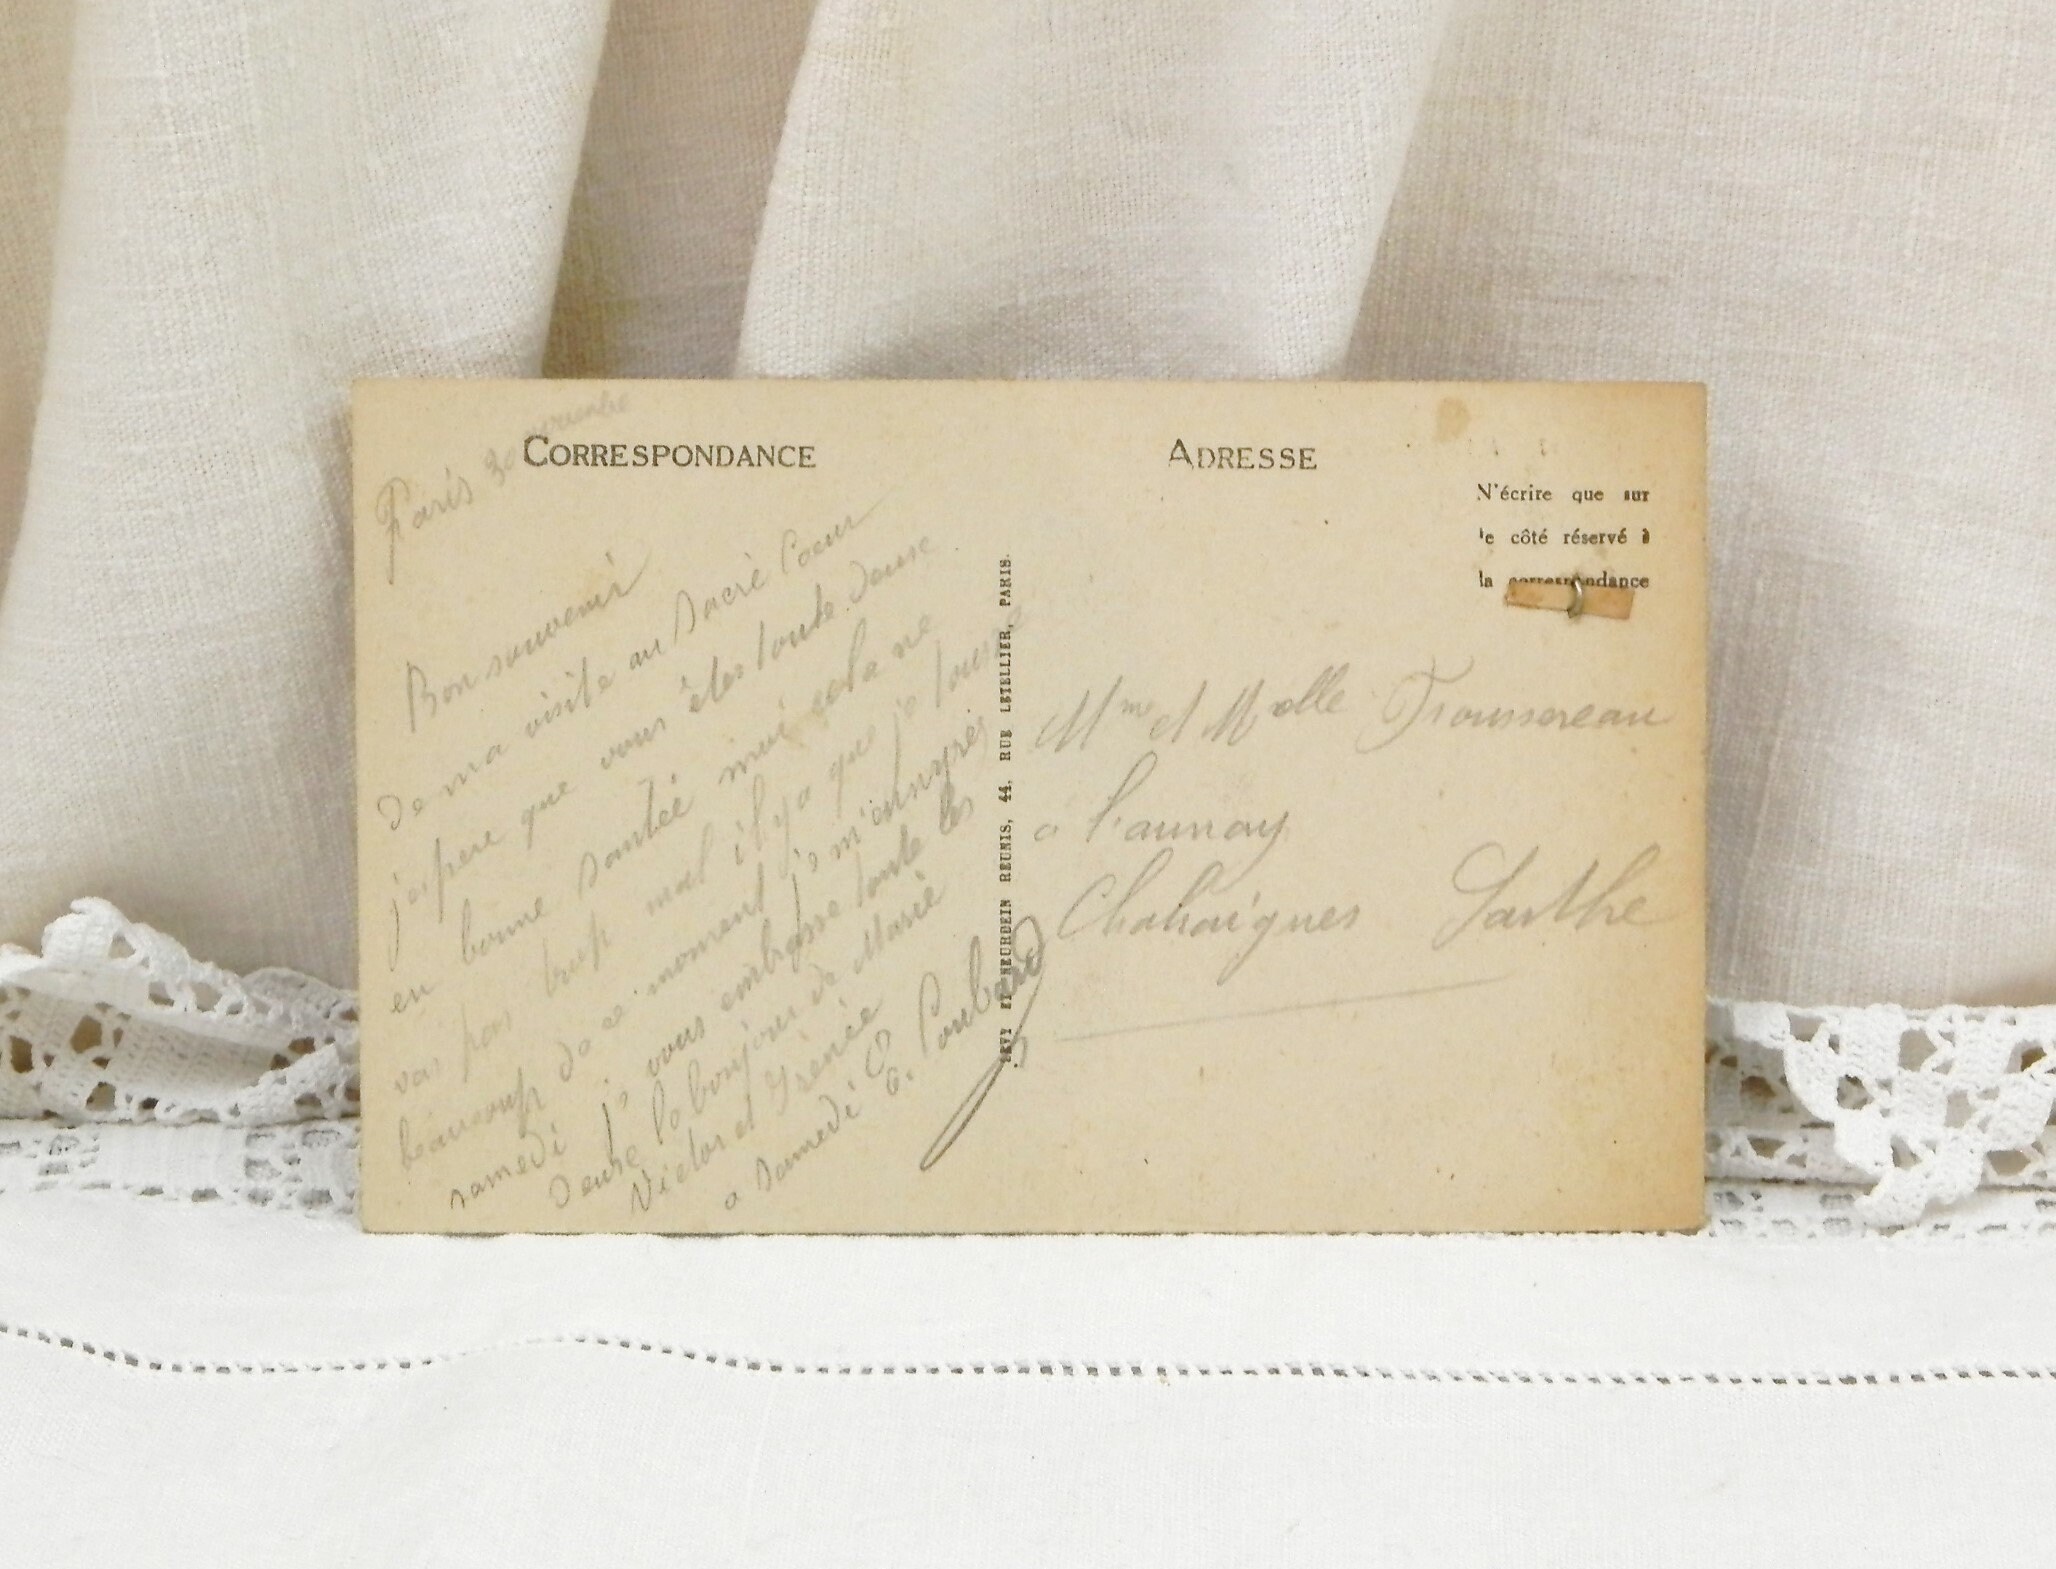 Paris 30 novembre
CORRESPONDANCE
Bon souvenir
de ma visite au Sacré Coeur
j'espere que vous êtes toute deuse
en bonne santéé moi cela ne
vai pas trop mal il y a que je tousse
beaucoup de ce moment je m'annuyres
samedi je vous embrasse toute les
deuse le bonjour de Marie
Victor et Irènée
a Samedi
LEVY ET NEURDEIN REUNIS, 44, RUE LETELLIER, PARIS.
ADRESSE
N'écrire que sur
le côté réservé à
la correspondance
Mme et Melle Troussereau
a Launay
Chahaignes Sarthe